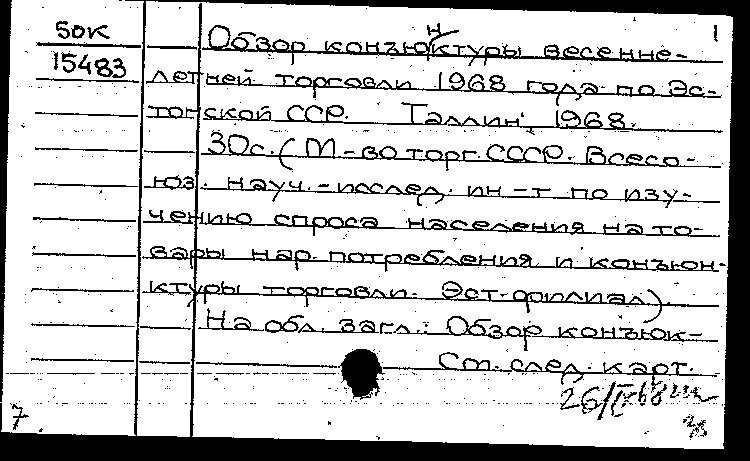 1
50К
15483
Обзор конъюнктуры весенне-
летней торговли 1968 года по Эс-
тонской ССР. Таллин, 1968.
30с. (М-во торг. СССР. Всесо-
юз. науч.-исслед. ин-т по изу-
чению спроса населения на то-
вары нар. потребления и конъюн-
ктуры торговли. Эст. филиал)
На обл. загл.: Обзор конъюк-
См. след. карт.
7